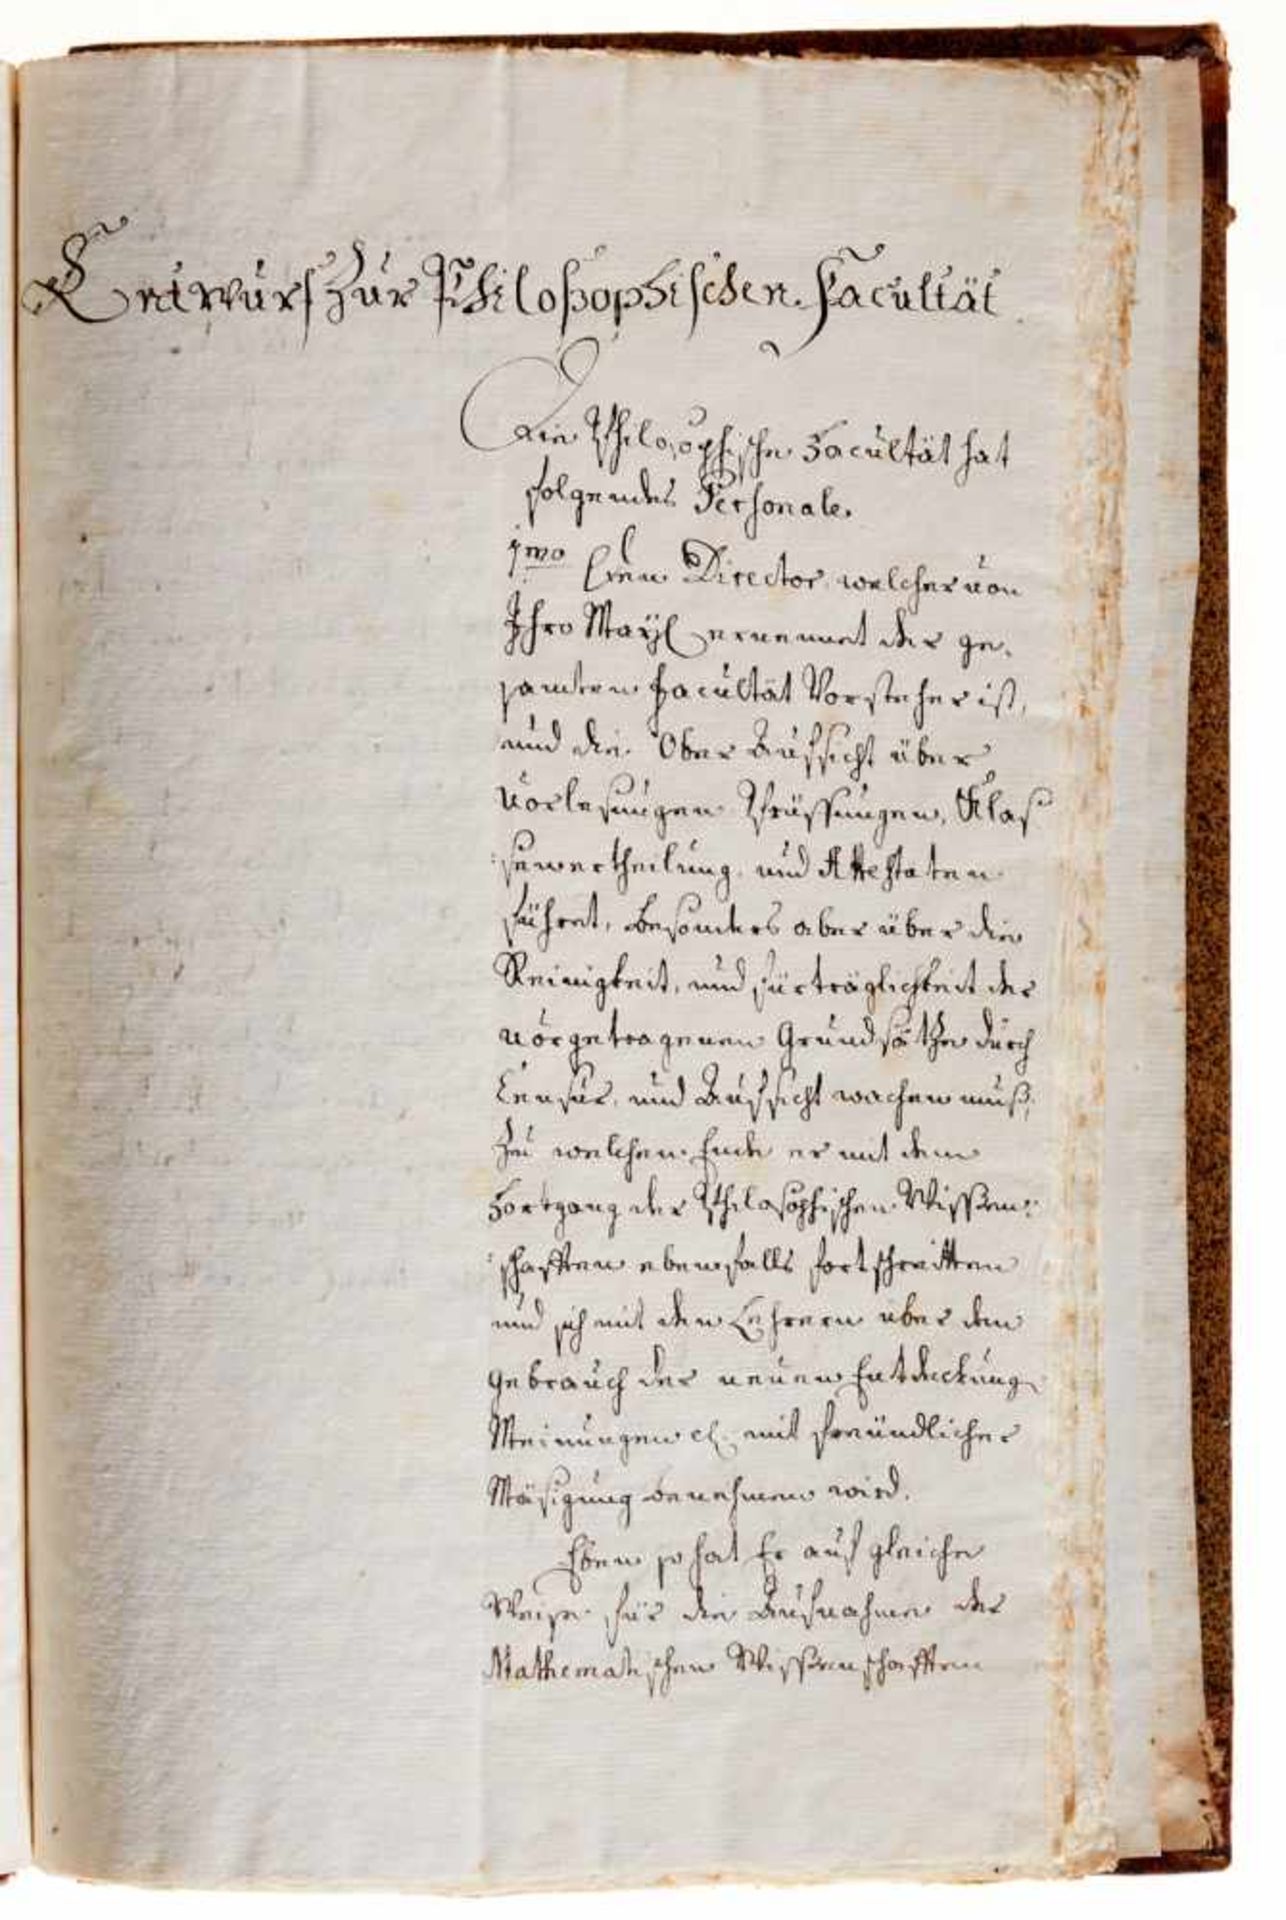 Entwurf zur Philosophischen Facultät
Die Philosophische Facultät hat
folgendes Personale.
1mo Den Director, welcher von
Ihro May: ernennet der ge-
samten Facultät Vorsteher ist,
und die Ober Aufsicht über
Vorlesungen Prüffungen, Klas
:senvertheilung, und Attestaten
führet, besonders aber über die
Reinigkeit, und fürträglichkeit der
vorgetragenen Grundsätzen durch
Censur, und Aufsicht wachen muß,
zu welchen Ende er mit dem
Fortgang der Philosophischen Wissen:
:schafften ebenfalls fortschreitten
und sich mit den Lehrern über den
gebrauch der neuen Entdeckung
Meinungen etc. mit freündlicher
Mäsigung benehmen wird.
Eben so hat Er auf gleiche
Weise für die Aufnahme der
Mathematischen Wissenschafften